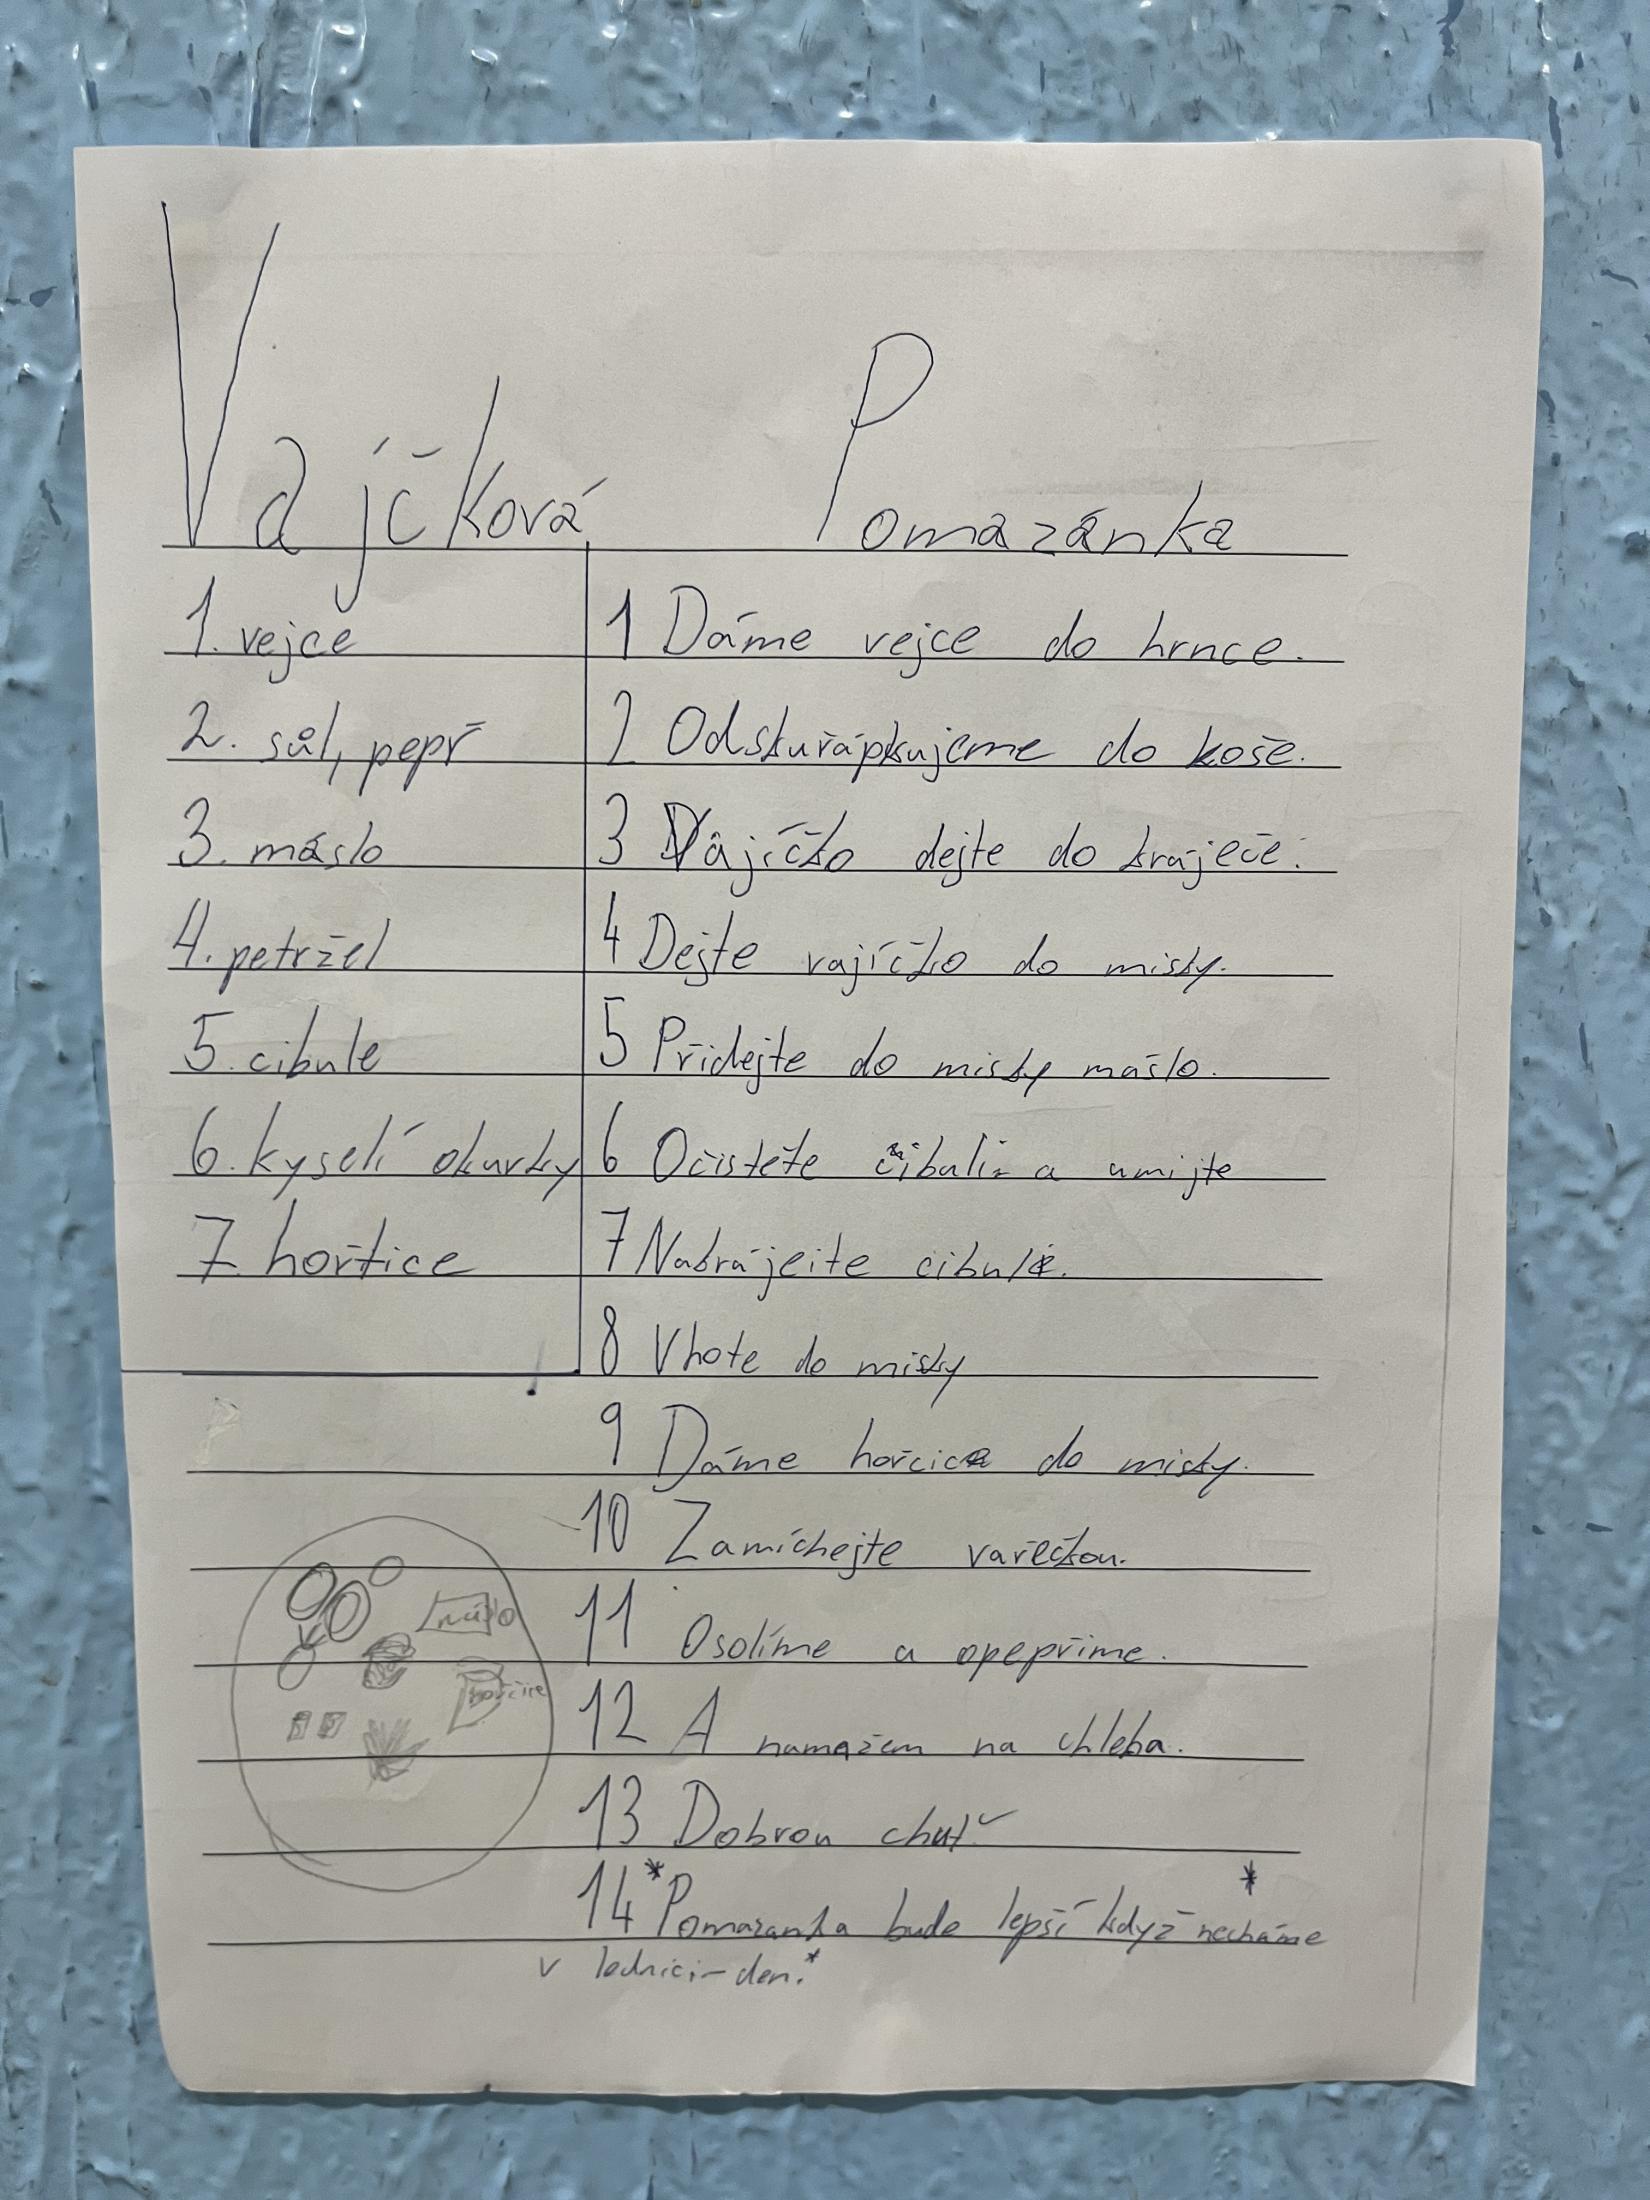 Vajíčková Pomazánka
1. vejce
2. sůl, pepř
3. máslo
4. petržel
5. cibule
6. kyselí okurky
7. hořtice
1 Dáme vejce do hrnce.
2 Odskuřápkujeme do koše.
3 Vajíčko dejte do kráječe.
4 Dejte vajíčko do misky.
5 Přidejte do misky máslo.
6 Očistěte cibuli a umijte
7 Nakrájeite cibuli.
8 Vhote do misky
9 Dáme hořcice do misky.
10 Zamíchejte vařečkou.
11 Osolíme a opepříme.
12 A namažem na chleba.
13 Dobrou chuť
14 *Pomazanka bude lepší když necháme *
v lednici – den.*
máslo
hořčice